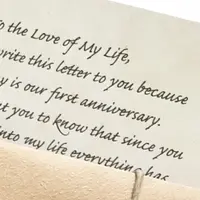 o the Love of My Life,
write this letter to you because
y is our first anniversary.
t you to know that since you
into my life everything has